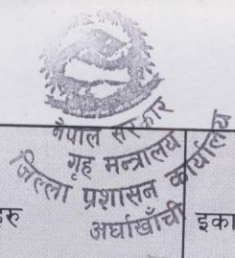 नेपाल सरकार
गृह मन्त्रालय
जिल्ला प्रशासन कार्यालय
अर्घाखाँची
हरु
इका